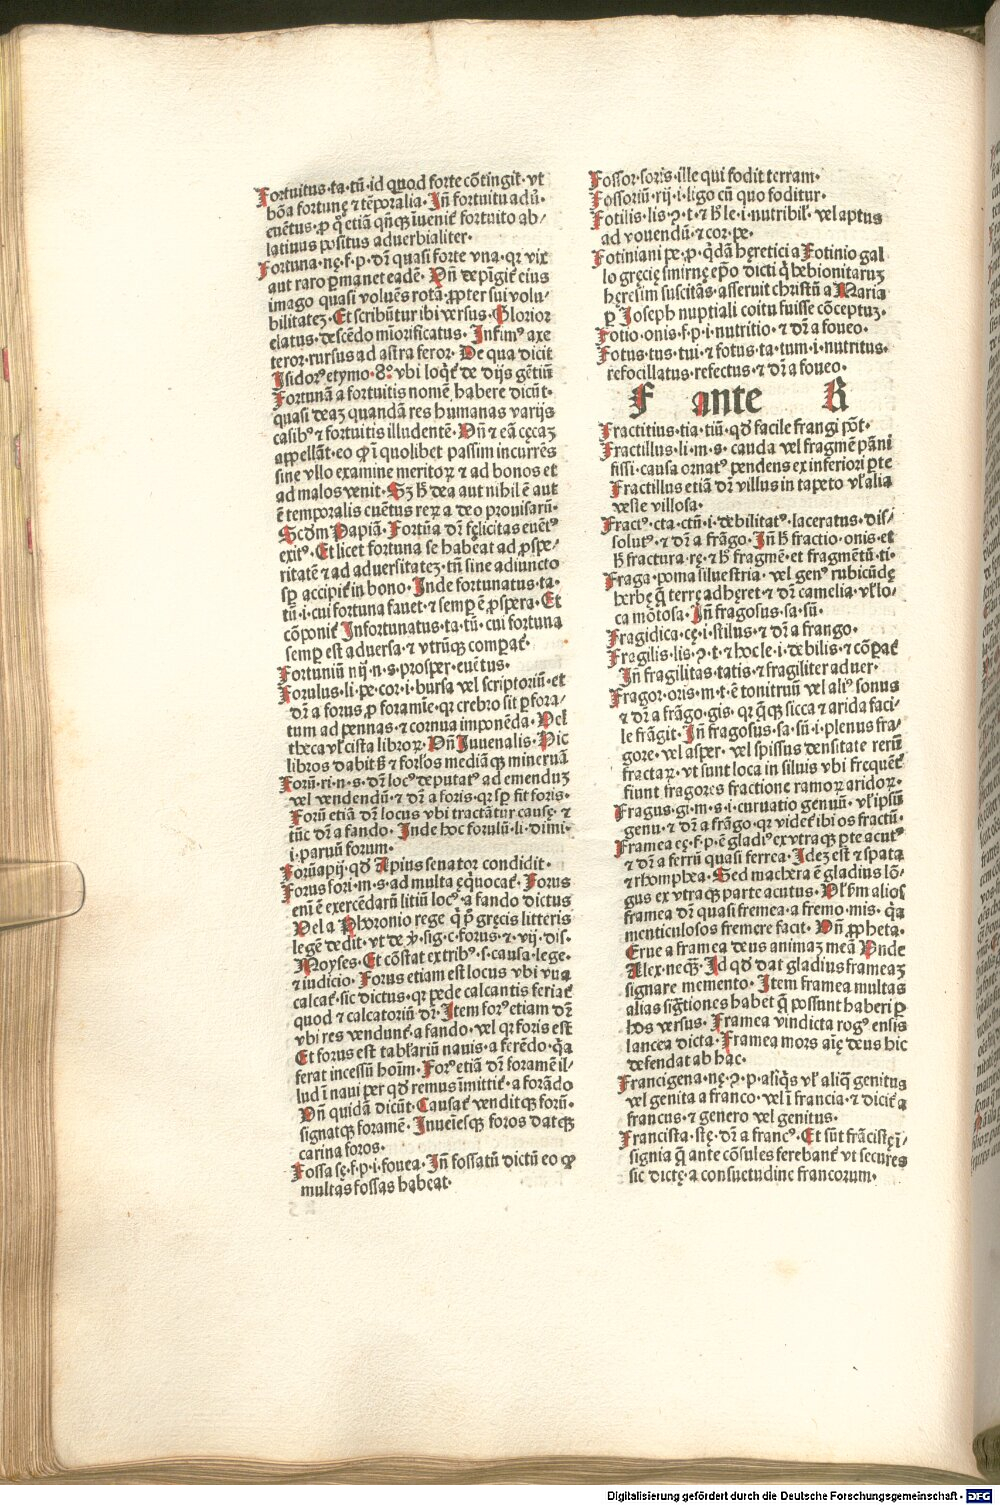 Fortuitus·ta·tū·id quod forte cōtingit·vt
bōa fortunę ⁊ tēporalia·Jn̄ fortuitu adū·
euētus·ꝓ q̇ etiā qn̄qꝫ īuenit᷑ fortuito ab/
latiuus positus aduerbialiter·
Fortuna·nę·f·p·dr̄ quasi forte vna·qr vix
aut raro ꝑmanet eadē·Vn̄ depīgit᷑ eius
imago quasi voluēs rota·ꝓpter sui volu/
bilitateꝫ·Et scribūtur ibi versus·Glorior
elatus·descēdo mīorificatus·Jnfimꝰ axe
teror·rursus ad astra feror·De qua dicit
Jsidorꝰ etymo·8º·vbi loqt᷑ de dijs gētiū
Fortunā a fortuitis nomē habere dicūt·
quasi deaꝫ quandā res humanas varijs
casibꝰ ⁊ fortuitis illudentē·Vn̄ ⁊ eā cęcaꝫ
appellāt·eo ꝙ ī quolibet passim incurrēs
sine vllo examine meritoꝝ ⁊ ad bonos et
ad malos venit·Sꝫ h̄ dea aut nihil ē aut
ē temporalis euētus reꝝ a deo prouisarū·
Scd̄m Papiā·Fortūa dr̄ fęlicitas euētꝰ
exitꝰ·Et licet fortuna se habeat ad ꝓspe/
ritatē ⁊ ad aduersitateꝫ·tn̄ sine adiuncto
sꝑ accipit᷑ in bono·Jnde fortunatus·ta·
tū·i·cui fortuna fauet·⁊ semꝑ ē ꝓspera·Et
cōponit᷑ Jnfortunatus·ta·tū·cui fortuna
semꝑ est aduersa·⁊ vtrūqꝫ compat᷑·
Fortuniū nij·n·s·prosper·euētus·
Forulus·li·pe·cor·i·bursa vel scriptoriū·et
dr̄ a forus ꝓ foramīe·qr crebro sit ꝑfora/
tum ad pennas·⁊ cornua imponēda·Vel
theca vl̓ cista libroꝝ·Vn̄ Juuenalis·Hic
libros dabit h̄ ⁊ forlōs mediāqꝫ mineruā
Forū·ri·n·s·dr̄ locꝰ deputatꝰ ad emenduꝫ
vel vendendū·⁊ dr̄ a foris·qr sꝑ fit foris·
Forū etiā dr̄ locus vbi tractātur causę·⁊
tūc dr̄ a fando·Jnde hoc forulū·li·dimi·
i·paruū forum·
Forūapij·qd̄ Apius senator condidit·
Forus fori·m·s·ad multa ęquocat᷑·Forus
enī ē exercēdarū litiū locꝰ·a fando dictus
Vel a Phoronio rege q̇ p̄ gręcis litteris
legē dedit·vt de ꝟ·sig·c·forus·⁊ vij·dis·
Moyses·Et cōstat ex tribꝰ·s·causa·lege·
⁊ iudicio·Forus etiam est locus vbi vua
calcat᷑·sic dictus·qr pede calcantis feriat᷑
quod ⁊ calcatoriū dr̄·Jtem forꝰ etiam dr̄
vbi res vendunt᷑·a fando·vel qr foris est
Et forus est tabl̓ariū nauis·a ferēdo·qa
ferat incessū hoīm·Forꝰ etiā dr̄ foramē il/
lud ī naui per qd̄ remus īmittit᷑·a forādo
Vn̄ quidā dicūt·Causat᷑ venditqꝫ forū·
signatqꝫ foramē·Jnueīesqꝫ foros datqꝫ
carina foros·
Fossa sę·f·p·i·fouea·Jn̄ fossatū dictū eo ꝙ
multas fossas habeat·
Fossor·soris·ille qui fodit terram·
Fossoriū·rij·i·ligo cū quo foditur·
Fotilis·lis·ɔ·t·⁊ h̄ le·i·nutribil᷑·vel aptus
ad vouendū·⁊ cor·pe·
Fotiniani pe·ꝓ·qdā hęretici a Fotinio gal
lo gręcię smirnę ep̄o dicti q̇ hebionitaruꝫ
hęresim suscitās·asseruit christū a Maria
ꝑ Joseph nuptiali coitu fuisse cōceptuꝫ·
Fotio·onis·f·p·i·nutritio·⁊ dr̄ a foueo·
Fotus·tus·tui·⁊ fotus·ta·tum·i·nutritus·
refocillatus·refectus·⁊ dr̄ a foueo·
F ante R
Fractitius·tia·tiū·qd̄ facile frangi pōt·
Fractillus·li·m·s·cauda vel fragmē pāni
fissi·causa ornatꝰ pendens ex inferiori ꝑte
Fractillus etiā dr̄ villus in tapeto vl̓ alia
veste villosa·
Fractꝰ·cta·ctū·i·debilitatꝰ·laceratus·dis/
solutꝰ·⁊ dr̄ a frāgo·Jn̄ h̄ fractio·onis·et
h̄ fractura·rę·⁊ h̄ fragmē·et fragmētū·ti·
Fraga·poma siluestria·vel genꝰ rubicūdę
herbę q̄ terrę adhęret·⁊ dr̄ camelia·vl̓ lo/
ca mōtosa·Jn̄ fragosus·sa·sū·
Fragidica·cę·i·stilus·⁊ dr̄ a frango·
Fragilis·lis·ɔ·t·⁊ hoc le·i·debilis·⁊ cōpat᷑
Jn̄ fragilitas·tatis·⁊ fragiliter aduer·
Fragor·oris·m·t·ē tonitruū vel aliꝰ sonus
⁊ dr̄ a frāgo·gis·qr q̄qꝫ sicca ⁊ arida faci/
le frāgit᷑·Jn̄ fragosus·sa·sū·i·plenus fra/
gore·vel asper·vel spissus densitate rerū
fractaꝝ·vt sunt loca in siluis vbi frequēt᷑
fiunt fragores fractione ramoꝝ aridoꝝ·
Fragus·gi·m·s·i·curuatio genuū·vl̓ ipsū
genu·⁊ dr̄ a frāgo·qr videt᷑ ibi os fractū·
Framea eę·f·p·ē gladiꝰ ex vtraqꝫ ꝑte acutꝰ
⁊ dr̄ a ferrū quasi ferrea·Jdeꝫ est ⁊ spata
⁊ rhomphea·Sed machera ē gladius lō/
gus ex vtraqꝫ parte acutus·Vl̓ hm̄ alios
framea dr̄ quasi fremea·a fremo·mis·qa
menticulosos fremere facit·Vn̄ ꝓpheta·
Erue a framea deus animaꝫ meā Vnde
Alex·neqꝫ·Jd qd̄ dat gladius frameaꝫ
signare memento·Jtem framea multas
alias sigt̄iones habet q̄ possunt haberi ꝑ
hos versus·Framea vindicta rogꝰ ensis
lancea dicta·Framea mors aīę deus hic
defendat ab hac·
Francigena·nę·ɔ·p·aliqs vl̓ aliq̄ genitus
vel genita a franco·vel ī francia·⁊ dicit᷑ a
francus·⁊ genero vel genitus·
Francista·stę·dr̄ a francꝰ·Et sūt frācistę ī/
signia q̄ ante cōsules ferebant᷑ vt secures
sic dictę·a consuetudine francorum·
Digitalisierung gefördert durch die Deutsche Forschungsgemeinschaft - DFG